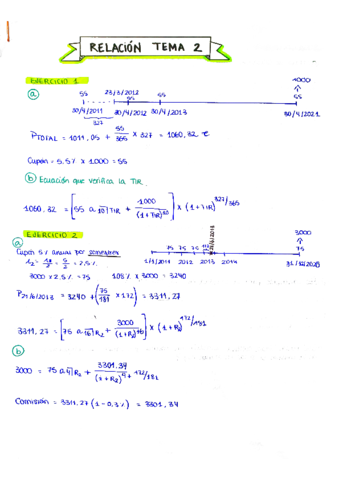 RELACIÓN TEMA 2
EJERCICIO 1
1000
ⓐ 55 23/3/2012 55 55
55
30/4/2011 30/4/2012 30/4/2013 30/4/2021
327
P_TOTAL = 1011,05 + 55/365 × 327 = 1060,32 €
Cupón = 5.5% × 1.000 = 55
ⓑ Ecuación que verifica la TIR.
1060,32 = [55 a 10⌉TIR + 1.000/(1+TIR)^10] × (1+TIR)^327/365
EJERCICIO 2
3000
ⓐ Cupón 5% anual por semestres 75 75 75 21/6/2013 75
i₂ = i₂/2 = 5/2 = 2,5% 1/1/2011 2012 2013 2014
3000 × 2.5% = 75 108% × 3000 = 3240
P 21/6/2013 = 3240 + (75/181 × 172) = 3311,27
3311,27 = [75 a 16⌉R₂ + 3000/(1+R₂)^16] × (1+R₂)^172/181
ⓑ
3000 = 75 a 4⌉R₂ + 3301.34/(1+R₂)^4 + 172/181
Comisión = 3311.27 (1 - 0,3%) = 3301,34